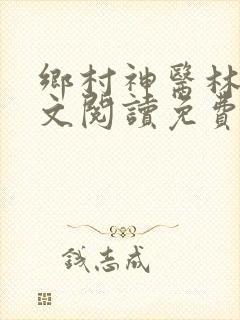 鄉村神醫林
文閱讀免費
錢志成